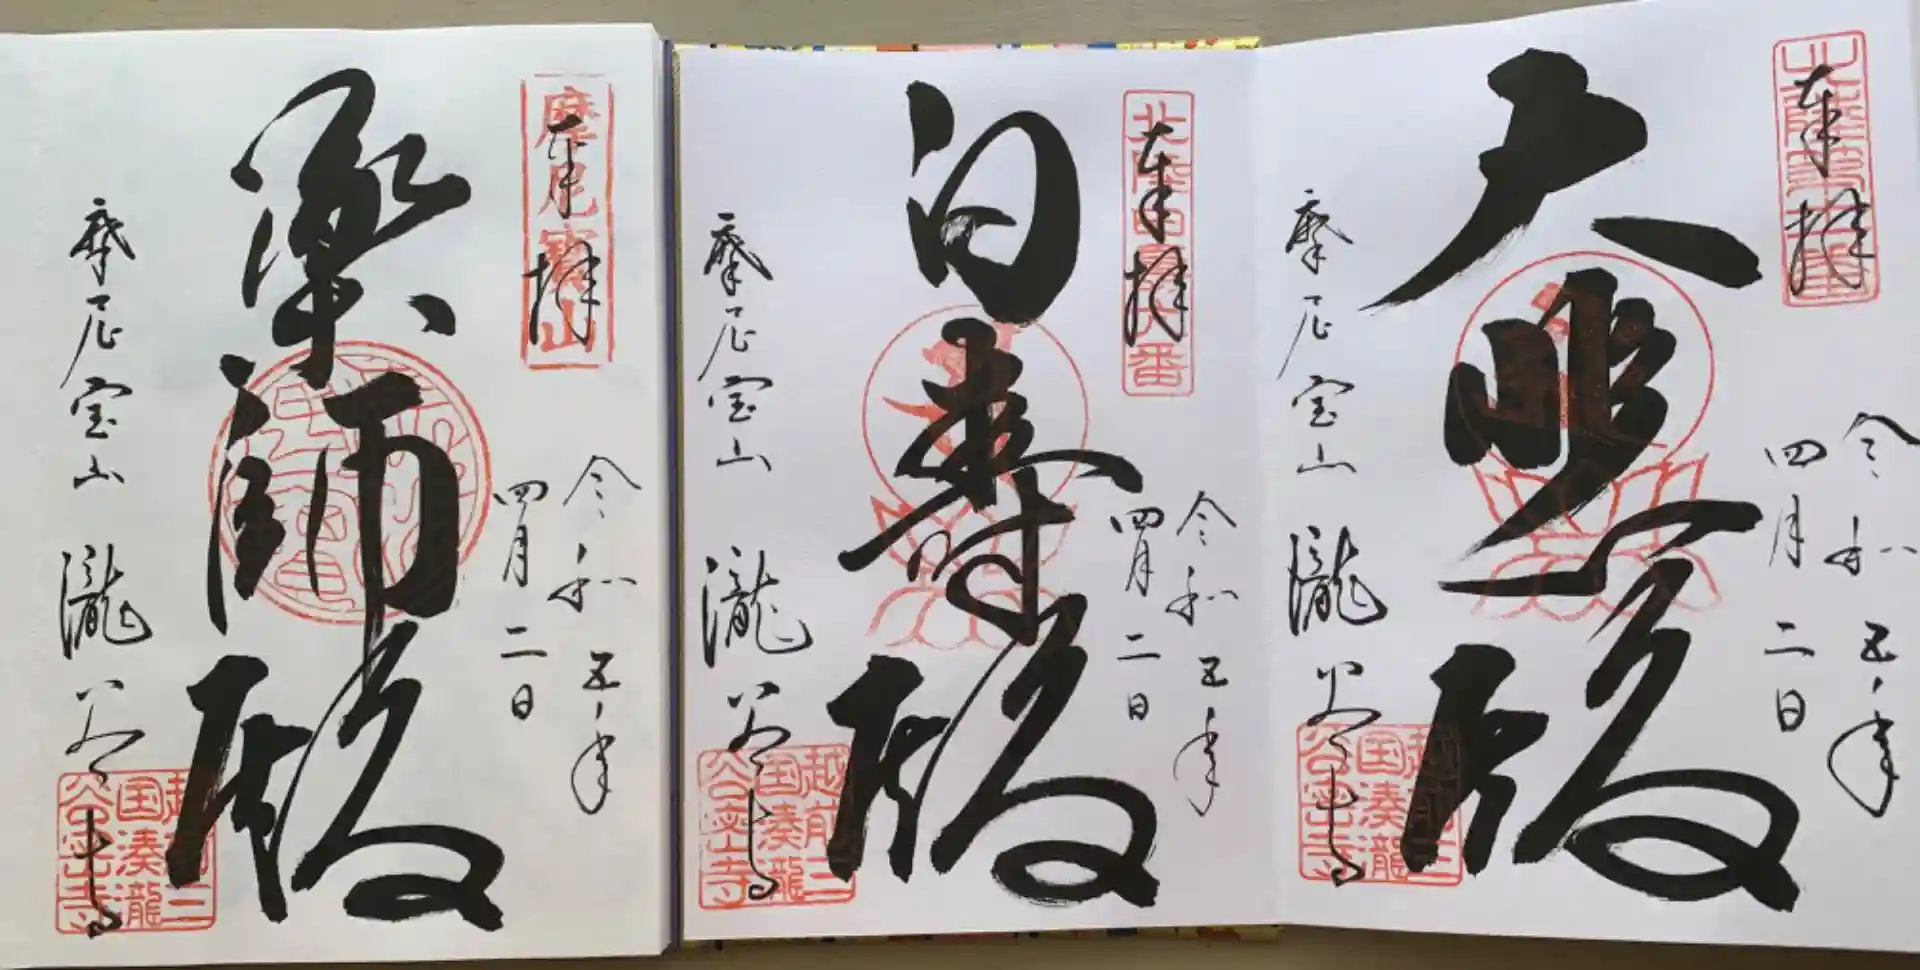 奉拝
令和五年
四月二日
大悲殿
摩尼宝山 瀧谷寺
越前三
国湊瀧
奉拝
令和五年
四月二日
白寿殿
摩尼宝山 瀧谷寺
越前三
国湊瀧
摩尼寶山
奉拝
令和五年
四月二日
薬師殿
摩尼宝山 瀧谷寺
越前三
国湊瀧